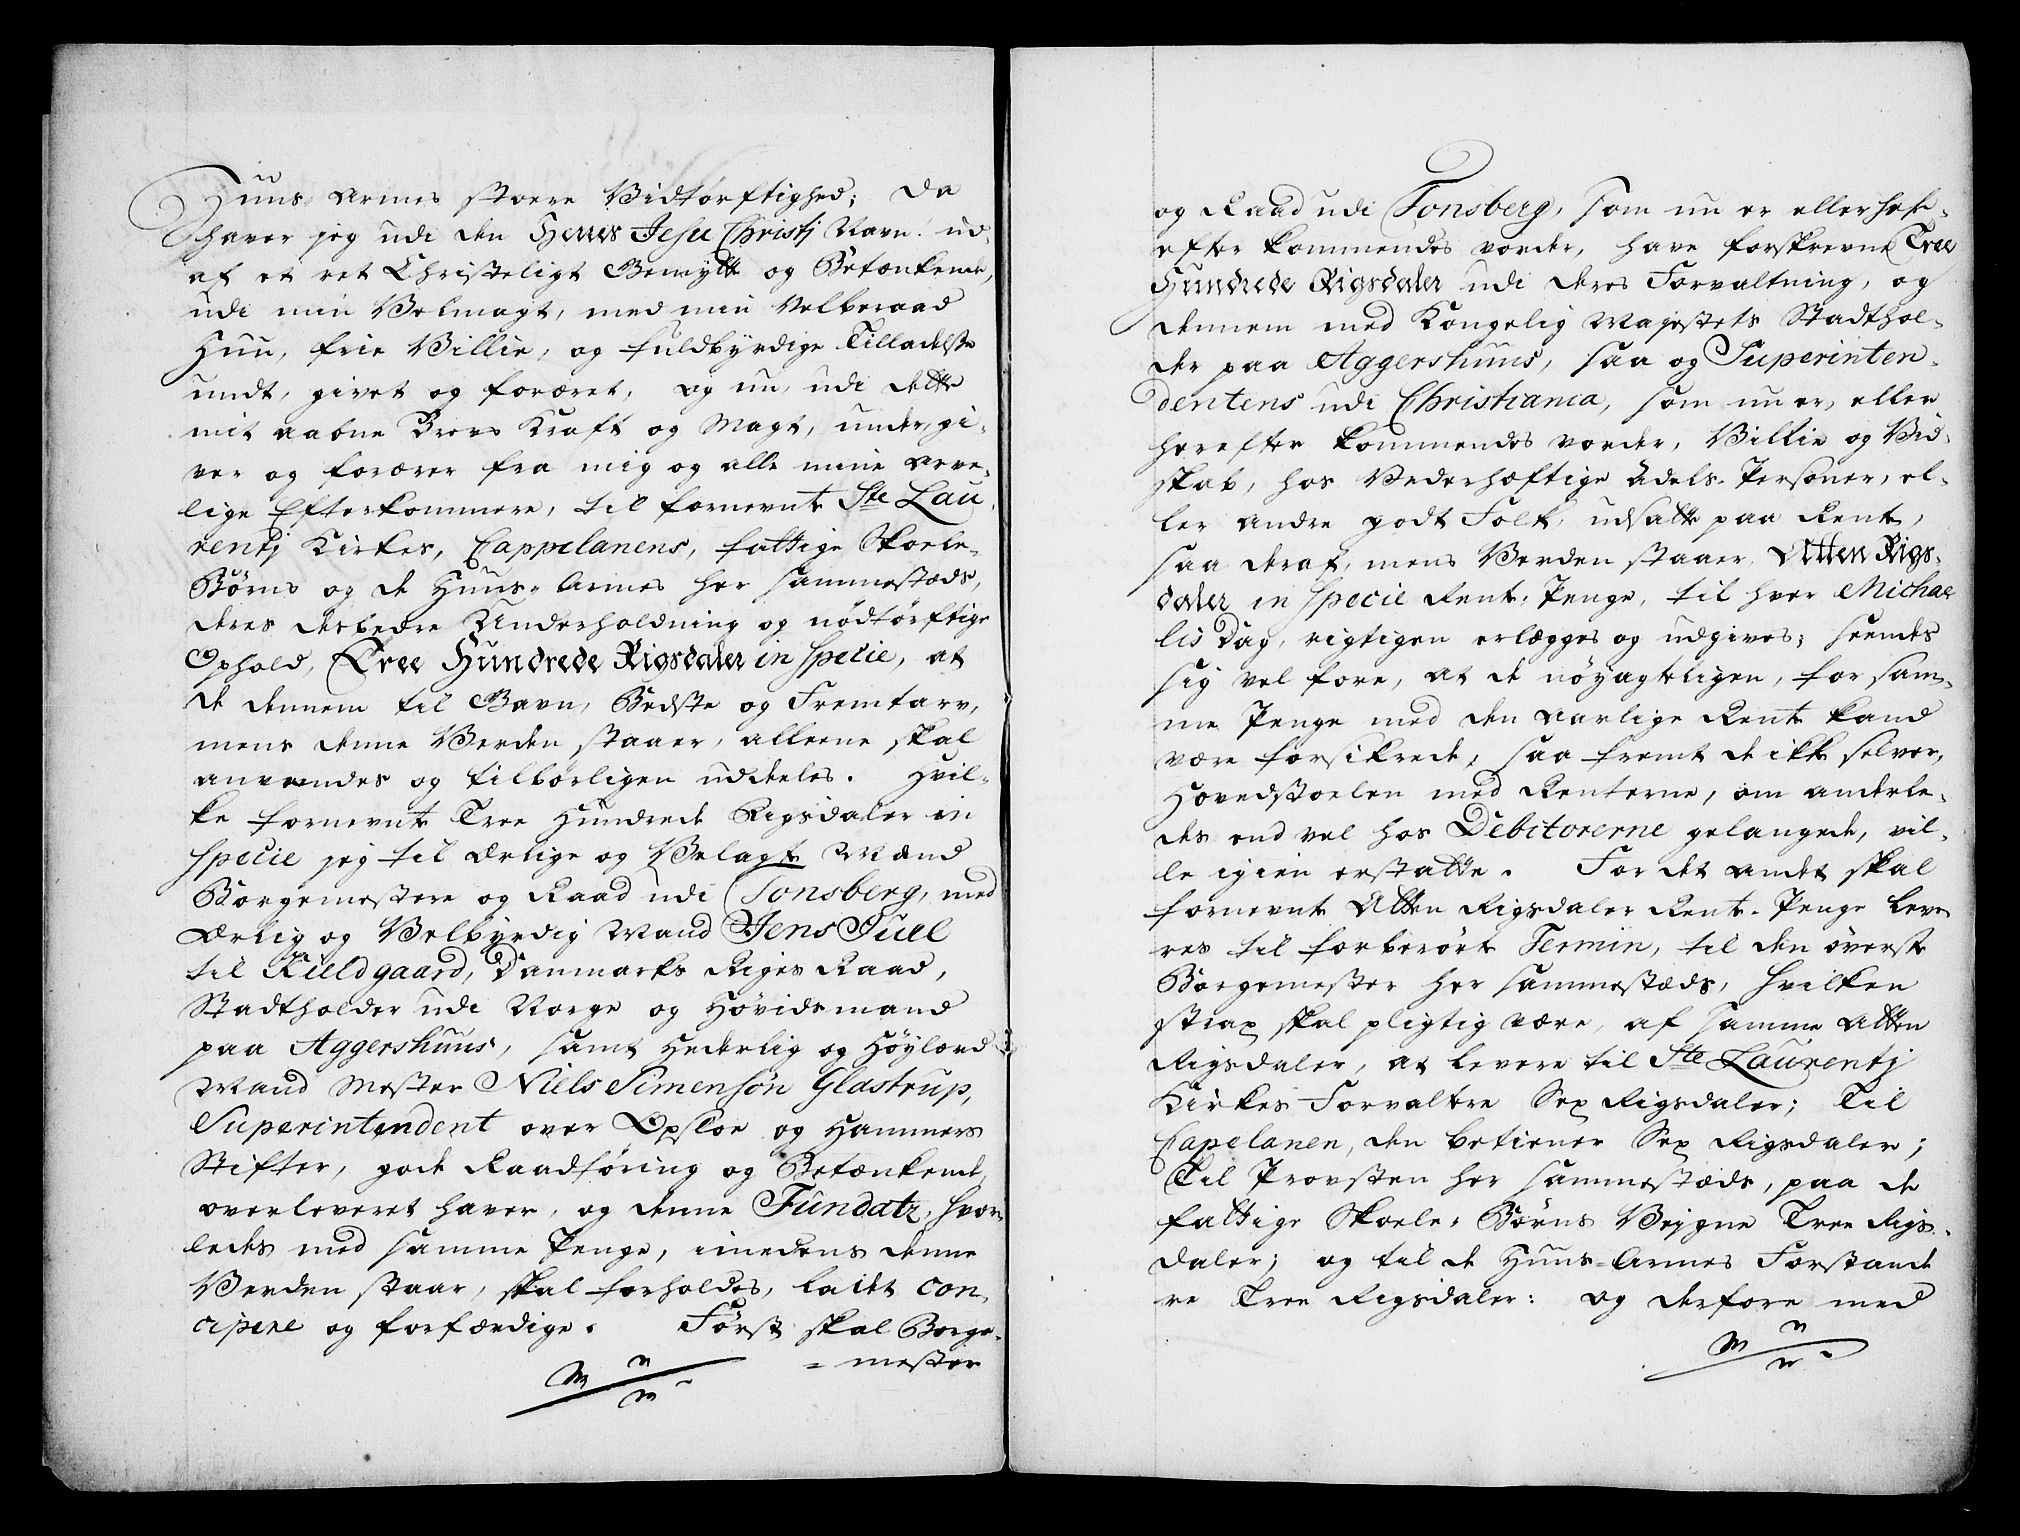 Huus-Armes stoere Vidtørftighed; Da
haver jeg udi den Herres Jesu Christj Navn, ud-
af et ret Christeligt Gemytt og Betænkende,
udi min Velmagt, med min Velberaad
Huu, frie Villie, og fuldbyrdige Tilladelse
undt, givet og foræret, og nu, udi dette
mit aabne Brevs Kraft og Magt, under, gi-
ver og forærer fra mig og alle mine Arve-
lige Efterkommere, til fornevnte Ste Lau-
rentj Kirkes, Cappelanens, fattige Skoele-
Børns og de Huus-Armes her sammestæds,
deres desbedre Underholdning og nødtørftige
Ophold, Tree Hundrede Rigsdaler in specie, at
de dennem til Gavn, Bedste og Fremtarv,
mens denne Verden staaer, alleene skal
anvendes og tilbørligen uddeles. Hvil-
ke fornevnte Tree Hundrede Rigsdaler in
specie jeg til Ærlige og Velagte Mænd
Borgemestere og Raad udi Tonsberg, med
Ærlig og Velbyrdig Mand Jens Juel
til Kieldgaard, Danmarks Riges Raad,
Stadtholder udi Norge og Høvidsmand
paa Aggershuus, samt Hederlig og Høylærd
Mand Mester Niels Simensøn Glastrup,
Superintendent over Opsloe og Hammers
Stifter, gode Raadføring og Betænkende,
overleveret haver, og denne Fundatz, hvor-
ledes med samme Penge, imedens denne
Verden staar, skal forholdes, ladet con-
cipere og forfærdige. Først skal Borge-
=mester
og Raad udi Tonsberg, som nu er eller her-
efter kommendes vorder, have forskrevne Tree
Hundrede Rigsdaler udi deres Forvaltning, og
dennem med Kongelig Majestets Stadthol-
der paa Aggershuus, saa og Superinten-
dentens udi Christiania, som nu er, eller
herefter kommendes vorder, Villie og Vid-
skab, hos Vederhæftige Adels-Personer, el-
ler andre godt Folk, udsatte paa Rente,
saa deraf, mens Verden staaer, Atten Rigs-
daler in specie Rente-Penge, til hver Michae
lis Dag, rigtigen erlægges og udgives; seendes
sig vel fore, at de nøyagteligen, for sam-
me Penge med den aarlige Rente kand
være forsikrede, saa fremt de ikke selver,
Hovedstoelen med Renterne, om anderle-
des end vel hos Debitorerne gelangede, vil-
le igien erstatte. For det andet skal
fornevnte Atten Rigsdaler Rente-Penge leve
res til forberørte Termin, til den øverste
Borgemester her sammestæds, hvilken
strax skal pligtig være, af samme Atten
Rigsdaler, at levere til Ste Laurentj
Kirkes Forvaltre Sex Rigsdaler; Til
Capelanen, den betiener Sex Rigsdaler;
Til Provsten her sammestæds, paa de
fattige Skoele-Børns Vejgne Tree Rigs-
daler; og til de Huus-Armes Forstande
re Tree Rigsdaler: og derfore med